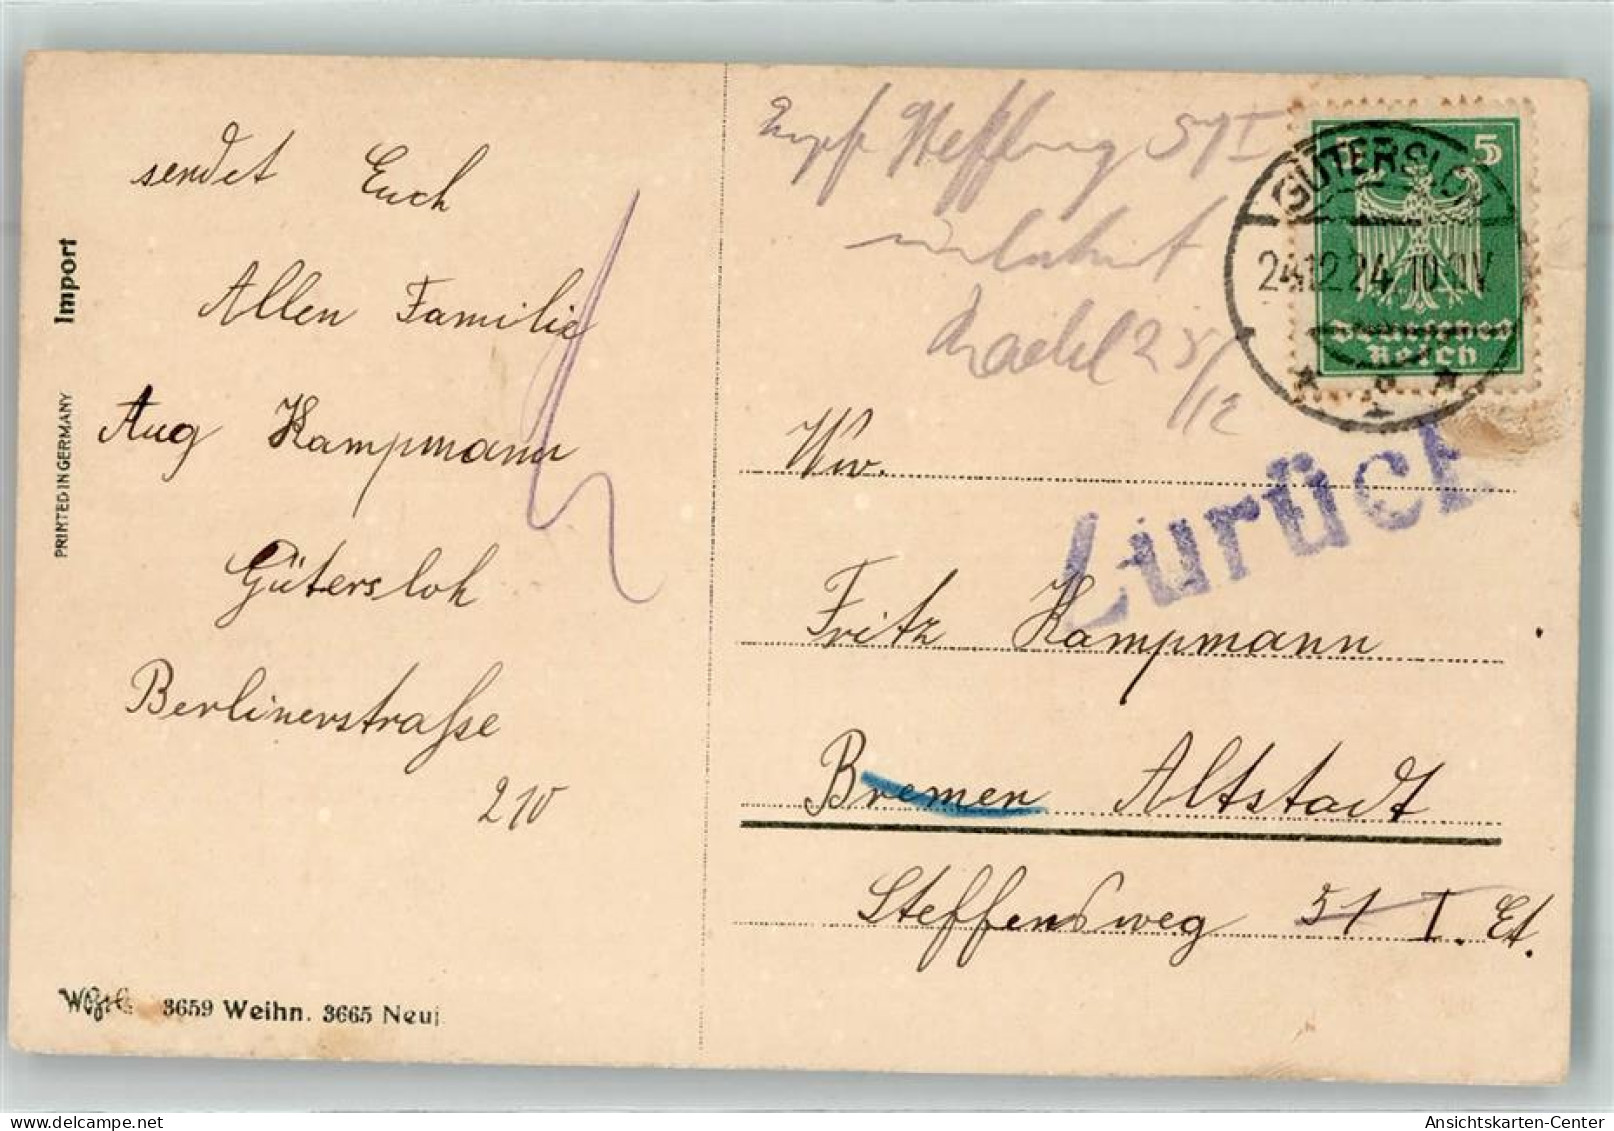 sendet Euch
Allen Familie
Aug Kampmann
Gütersloh
Berlinerstraße
210
Import
PRINTED IN GERMANY
3659 Weihn. 3665 Neuj.
Empf Steffensweg 51 I
unbekannt
25/12
GÜTERSLOH
24.12.24. 10-11V
5
Deutsches
Reich
Zurück
Ww.
Fritz Kampmann
Bremen Altstadt
Steffensweg 51 I. Et.
Ansichtskarten-Center